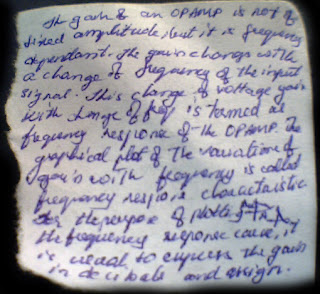 The gain of an OPAMP is not of
fixed amplitude, but it is frequency
dependant. The gain change with
a change of frequency of the input
signal. This change of voltage gain
with change of freq is termed as
frequency response of the OPAMP. The
graphical plot of the variation of
gain with frequency is called
frequency respons characteristic
For the purpose of plotting
the frequency response curve, it
is usual to express the gain
in decibels and